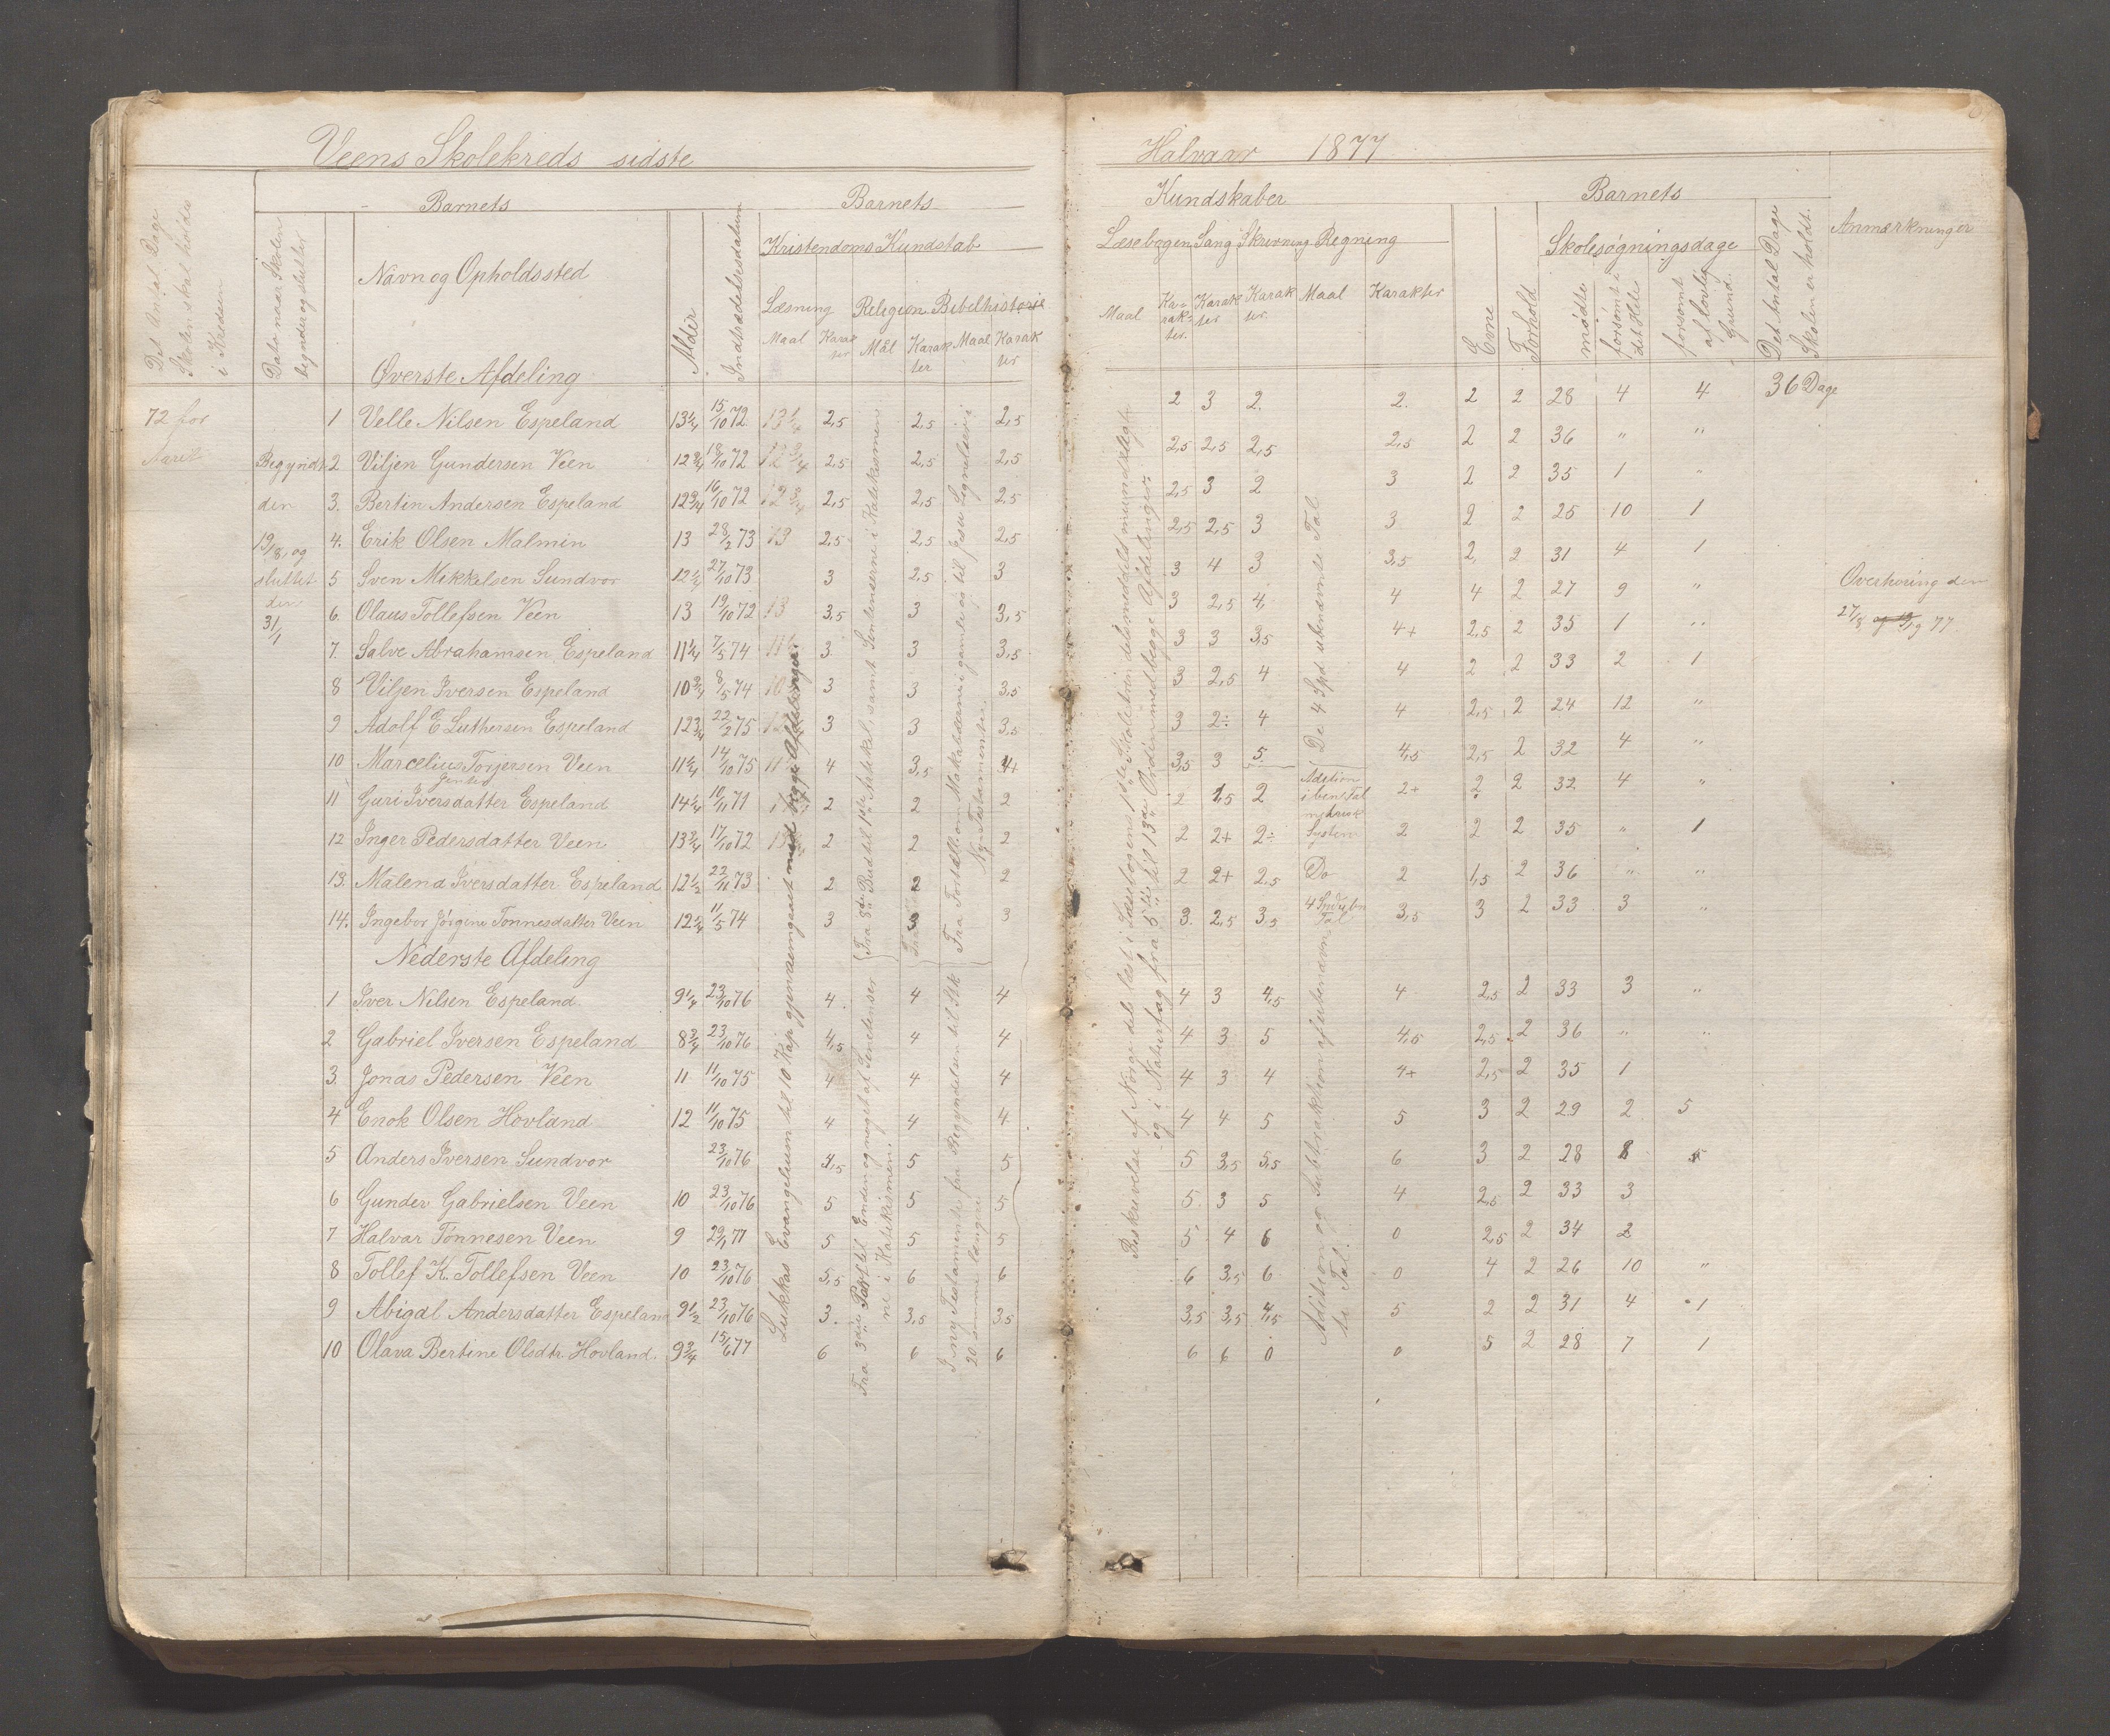 Veens Skolekreds sidste Halvaar 1877
Det Antal Dage Skolen skal holdes i Kredsen
Dato naar Skolen begynder og slutter
Barnets
Navn og Opholdssted
Øverste Afdeling
Alder
Indtrædelsesdatum
Barnets Kundskaber
Kristendoms Kundskab
Læsning Religion Bibelhistorie
Maal Karakter Mål Karakter Maal Karakter
Læsebogen Sang Skrivning Regning
Maal Karakter Karakter Karakter Maal Karakter
Barnets
Evne
Forhold
Skolesøgningsdage
mødte
forsømt i det Hele
forsømt af lovlig Grund.
Det Antal Dage Skolen er holdt.
Anmærkninger
72 for Aaret
Begyndt den 19/8, og sluttet den 31/1
1 Velle Nilsen Espeland 13 1/4 15/10 72 13 1/4 2,5 2,5 2,5 2 3 2. 2. 2 2 28 4 4 36 Dage
2 Viljen Gundersen Veen 12 3/4 18/10 72 12 3/4 2,5 2,5 2,5 2,5 2,5 2,5 2,5 2 2 36 " "
3. Bertin Andersen Espeland 12 3/4 16/10 72 12 3/4 2,5 2,5 2,5 2,5 3 2 3 2 2 35 1 "
4. Erik Olsen Malmin 13 28/2 73 13 2,5 2,5 2,5 2,5 2,5 3 3 2 2 25 10 1
5 Sven Mikkelsen Sundvor 12 1/2 27/10 73 3 2,5 3 3 4 3 3,5 2, 2 31 4 1
6. Olaus Tollefsen Veen 13 19/10 72 13 3,5 3 3,5 3 2,5 4, 4 4 2 27 9 "
7. Salve Abrahamsen Espeland 11 1/4 7/5 74 3 3 3,5 3 3 3,5 4+ 2,5 2 35 1 "
8 Viljen Iversen Espeland 10 3/4 8/5 74 3 3 3,5 3 2,5 4 4 2 2 33 2 1
9 Adolf E Luthersen Espeland 12 3/4 22/2 75 3 3 3,5 3 2÷ 4 4 2,5 2 24 12 "
10 Marcelius Torjersen Veen 11 1/4 14/10 75 4 3,5 4+ 3,5 3 5. 4,5 2,5 2 32 4 "
11 Guri Iversdatter Espeland 14 1/4 10/11 71 2 2 2 2 1,5 2 2+ 2 2 32 4 "
12 Inger Pedersdatter Veen 13 3/4 17/10 72 2 2 2 2 2+ 2÷ 2 2 2 35 " 1
13. Malena Iversdatter Espeland 12 1/2 22/11 73 2 2 2 2 2+ 2,5 Do 2 1,5 2 36 " "
14. Ingebor Jørgine Tønnesdatter Veen 12 3/4 11/5 74 3 3 3 3. 2,5 3,5 3,5 3 2 33 3 "
Nederste Afdeling
1 Iver Nilsen Espeland. 9 1/4 23/10 76 4. 4 4 4 3 4,5 4 2,5 2 33 3 "
2 Gabriel Iversen Espeland 8 3/4 23/10 76 4,5 4 4 4 3 5 4,5 2,5 2 36 " "
3. Jonas Pedersen Veen 11 11/10 75 4 4 4 4 3 4 4+ 2,5 2 35 1
4 Enok Olsen Hovland 12 11/10 75 4 4 4 4 4 5 5 3 2 29 2 5
5 Anders Iversen Sundvor 23/10 76 4,5 5 5 5 3,5 5,5 6 3 2 28 8 5
6 Gunder Gabrielsen Veen 10 23/10 76 5 5 5 5 3 5 4 2,5 2 33 3
7 Halvar Tønnesen Veen 9 29/1 77 5 5 5 5 4 6 0 2,5 2 34 2
8 Tollef K. Tollefsen Veen 10 23/10 76 5,5 6 6 6 3,5 6 0 4 2 26 10 "
9 Abigal Andersdatter Espeland 9 1/2 23/10 76 3. 3,5 3,5 3,5 3,5 4,5 5 2 2 31 4 1
10 Olava Bertine Olsdtr. Hovland. 9 3/4 15/6 77 6 6 6 6 6 0 0 5 2 28 7 1
Lukkas Evangelium til 10 Kap gjennemgaaet med begge Afdelinger.
Fra 3die Bud til 1ste Artikel, samt Sentenserne i Katekismen
Fra Fortæll. om Makabæerne i gamle og til Jesu Lignelser i Ny Testamente.
Fra 3die Part til Enden og noget af Sentenserne i Katekismen.
I ny Testamente fra Begyndelsen til Stk 20 somme længre
Beskrivelse af Norge dels læst i Læsebogens 1ste Skoletrin dels meddelt mundtlig
og i Naturfag fra 5te til 13de Orden med begge Afdelinger.
De 4 Spd ubenævnte Tal
Adition i ben. Tal metrisk System
4 Spd ubn Tal
Adition og Subtraktion af ubenævnte Tal.
Overhøring den 27/8 77